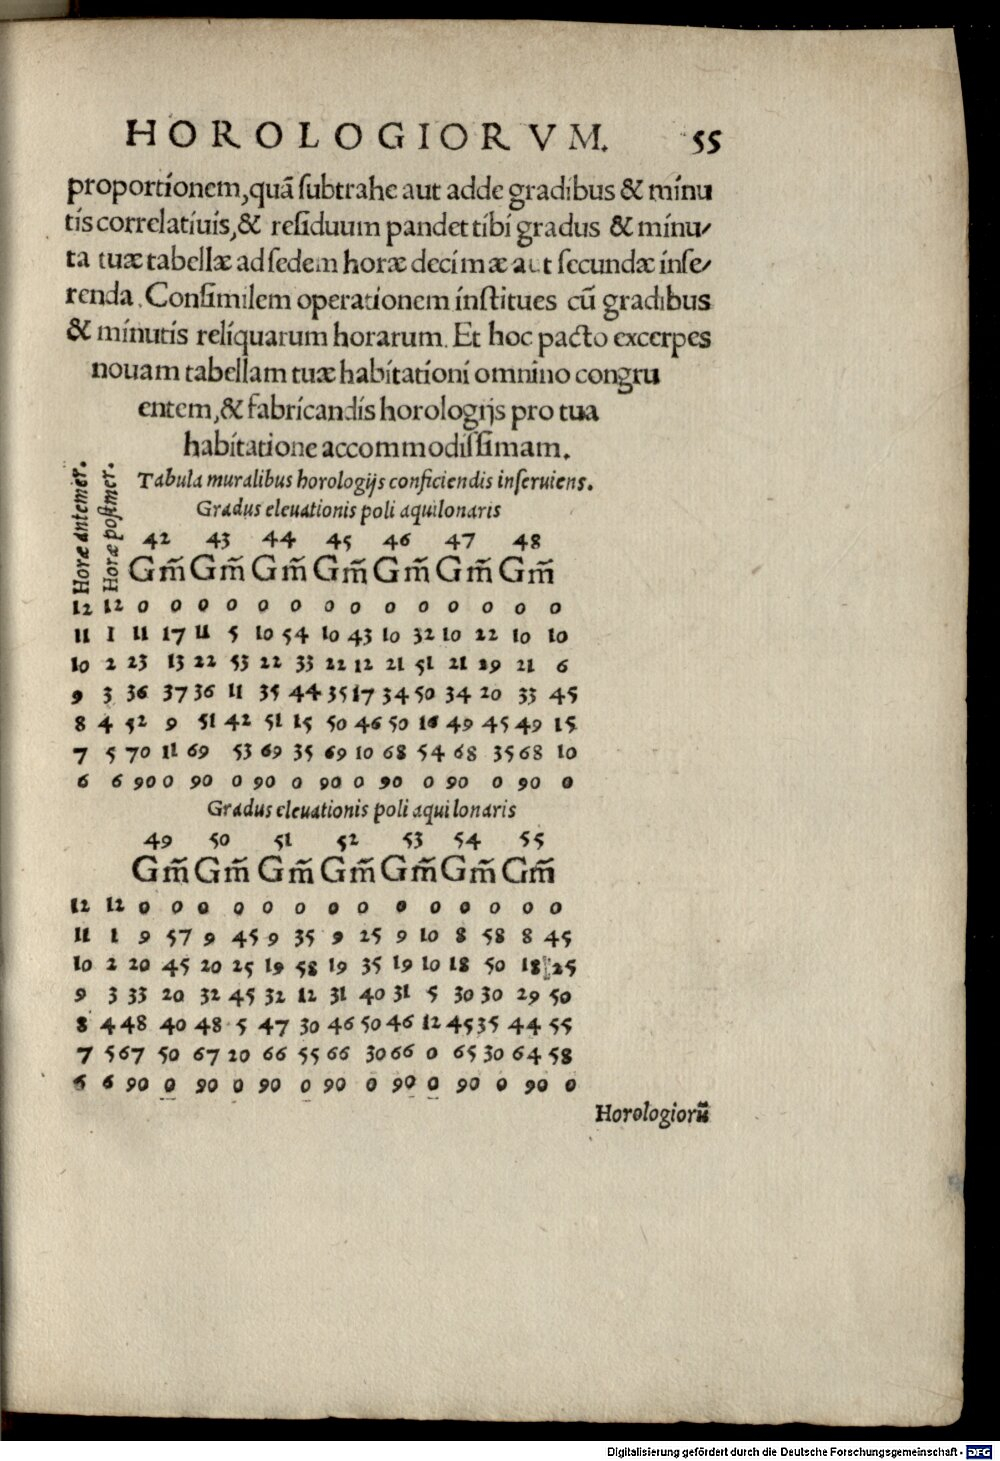 HOROLOGIORVM. 55
proportionem,quā ſubtrahe aut adde gradibus & minu
tis correlatiuis,& reſiduum pandet tibi gradus & minu/
ta tuæ tabellæ ad ſedem horæ decimæ aut ſecundæ inſe/
renda. Conſimilem operationem inſtitues cū gradibus
& minutis reliquarum horarum. Et hoc pacto excerpes
nouam tabellam tuæ habitationi omnino congru
entem,& fabricandis horologijs pro tua
habitatione accommodiſſimam.
Horæ antemer.
Horæ poſtmer.
Tabula muralibus horologijs conficiendis inſeruiens.
Gradus eleuationis poli aquilonaris
42 43 44 45 46 47 48
G m̄ G m̄ G m̄ G m̄ G m̄ G m̄ G m̄
12 12 0 0 0 0 0 0 0 0 0 0 0 0 0 0
11 1 11 17 11 5 10 54 10 43 10 32 10 22 10 10
10 2 23 13 22 53 22 33 22 12 21 51 21 29 21 6
9 3 36 37 36 11 35 44 35 17 34 50 34 20 33 45
8 4 52 9 51 42 51 15 50 46 50 16 49 45 49 15
7 5 70 11 69 53 69 35 69 10 68 54 68 35 68 10
6 6 90 0 90 0 90 0 90 0 90 0 90 0 90 0
Gradus eleuationis poli aquilonaris
49 50 51 52 53 54 55
G m̄ G m̄ G m̄ G m̄ G m̄ G m̄ G m̄
12 12 0 0 0 0 0 0 0 0 0 0 0 0 0 0
11 1 9 57 9 45 9 35 9 25 9 10 8 58 8 45
10 2 20 45 20 25 19 58 19 35 19 10 18 50 18 25
9 3 33 20 32 45 32 12 31 40 31 5 30 30 29 50
8 4 48 40 48 5 47 30 46 50 46 12 45 35 44 55
7 5 67 50 67 20 66 55 66 30 66 0 65 30 64 58
6 6 90 0 90 0 90 0 90 0 90 0 90 0 90 0
Horologiorū
Digitalisierung gefördert durch die Deutsche Forschungsgemeinschaft - DFG